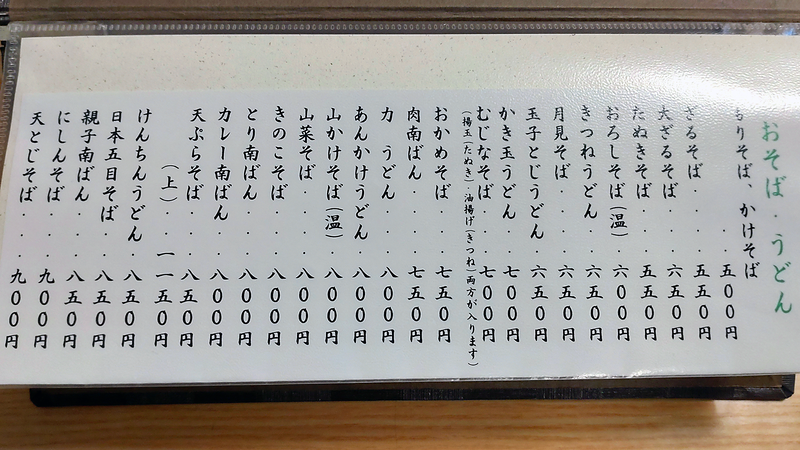 おそば・うどん
もりそば、かけそば・五〇〇円
ざるそば・・・五五〇円
大ざるそば・・六五〇円
たぬきそば・・五五〇円
おろしそば(温)六〇〇円
きつねうどん・六五〇円
月見そば・・・六五〇円
玉子とじうどん・六五〇円
かき玉うどん・七〇〇円
むじなそば・・七〇〇円
(揚玉(たぬき)・油揚げ(きつね)両方が入ります)
おかめそば・・七五〇円
肉南ばん・・・七五〇円
力うどん・・・八〇〇円
あんかけうどん・八〇〇円
山かけそば(温)八〇〇円
山菜そば・・・八〇〇円
きのこそば・・八〇〇円
とり南ばん・・八〇〇円
カレー南ばん・八〇〇円
天ぷらそば・・八五〇円
(上)・・一一五〇円
けんちんうどん・八五〇円
日本五目そば・八五〇円
親子南ばん・・八五〇円
にしんそば・・九〇〇円
天とじそば・・九〇〇円